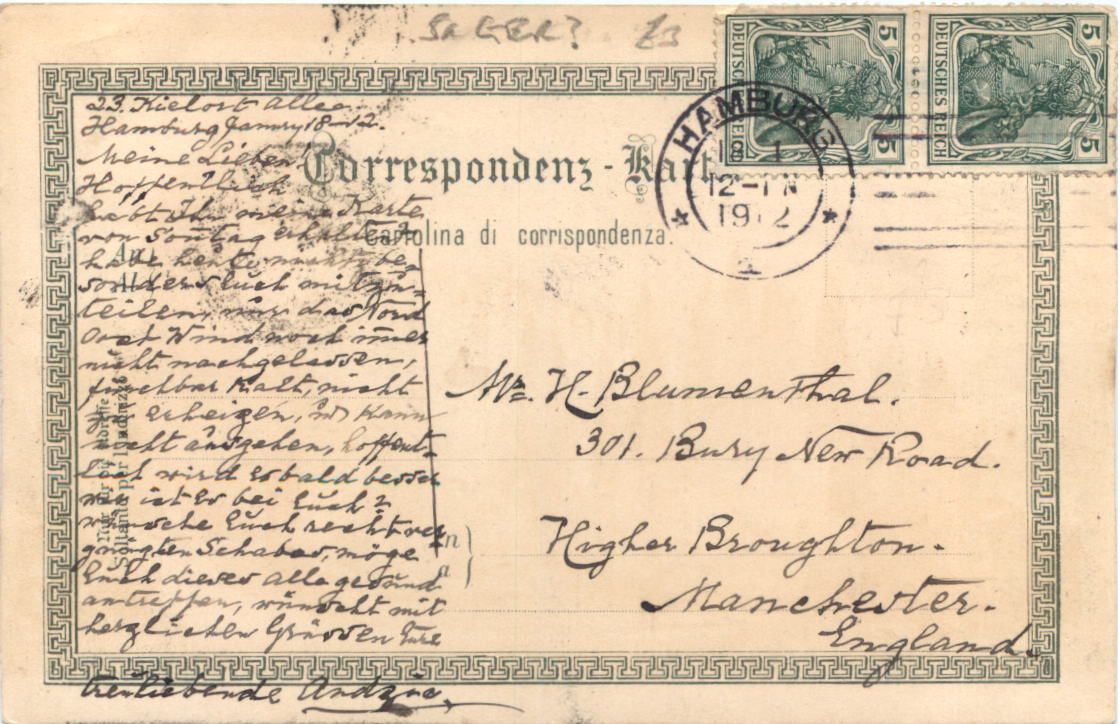 SAGER? £3
DEUTSCHES REICH 5 5
DEUTSCHES REICH 5 5
HAMBURG
12-1 N
1912
1
Correspondenz-Kart
Cartolina di corrispondenza.
Nur für die Adresse
Soltanto per l'indirizzo
23. Kielort Allee
Hamburg 18-12.
Meine Lieben
Hoffentlich
habt Ihr meine Karte
von Sontag erhalten
habe heute nichts be
sonders Euch mitzu-
teilen, nur das Nord
Ost Wind noch immer
nicht nachgelassen,
furchbar Kalt, nicht
zu erheizen, kann
nicht ausgehen, hoffent-
lich wird Es bald besser
wie ist Es bei Euch?
wünsche Euch recht ver
gnügten Schabas, möge
Euch dieses alle gesund
antreffen, wünscht mit
herzlichen Grüssen Eure
treuliebende
Mr. H. Blumenthal.
301. Bury New Road.
Higher Broughton.
Manchester.
England.